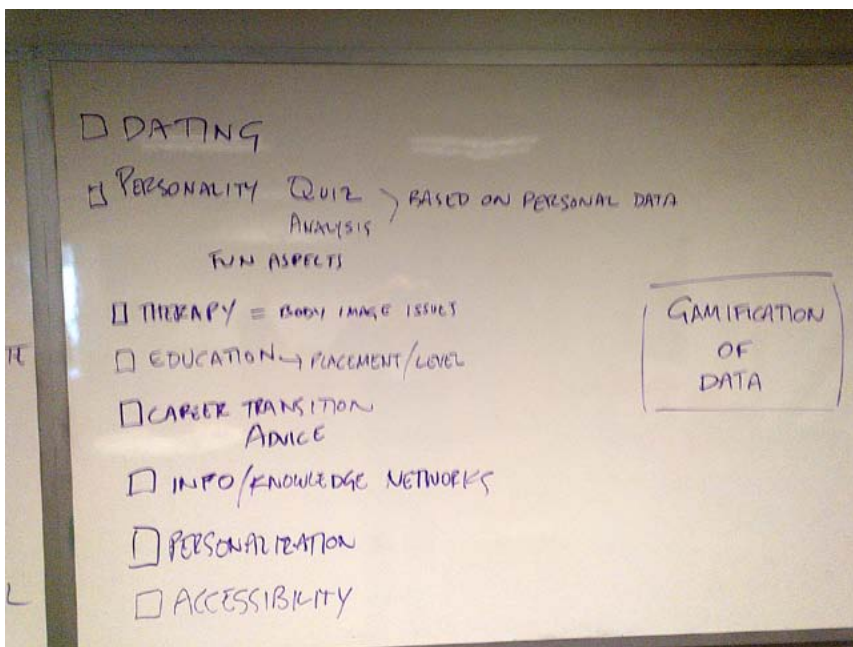 □ DATING
□ PERSONALITY QUIZ
ANALYSIS > BASED ON PERSONAL DATA
FUN ASPECTS
□ THERAPY = BODY IMAGE ISSUES
□ EDUCATION → PLACEMENT/LEVEL
□ CAREER TRANSITION
ADVICE
□ INFO/KNOWLEDGE NETWORKS
□ PERSONALIZATION
□ ACCESSIBILITY
GAMIFICATION
OF
DATA